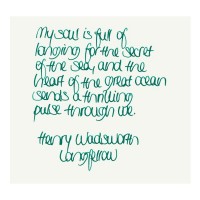 My soul is full of
longing for the secret
of the sea, and the
heart of the great ocean
sends a thrilling
pulse through me.
Henry Wadsworth
Longfellow